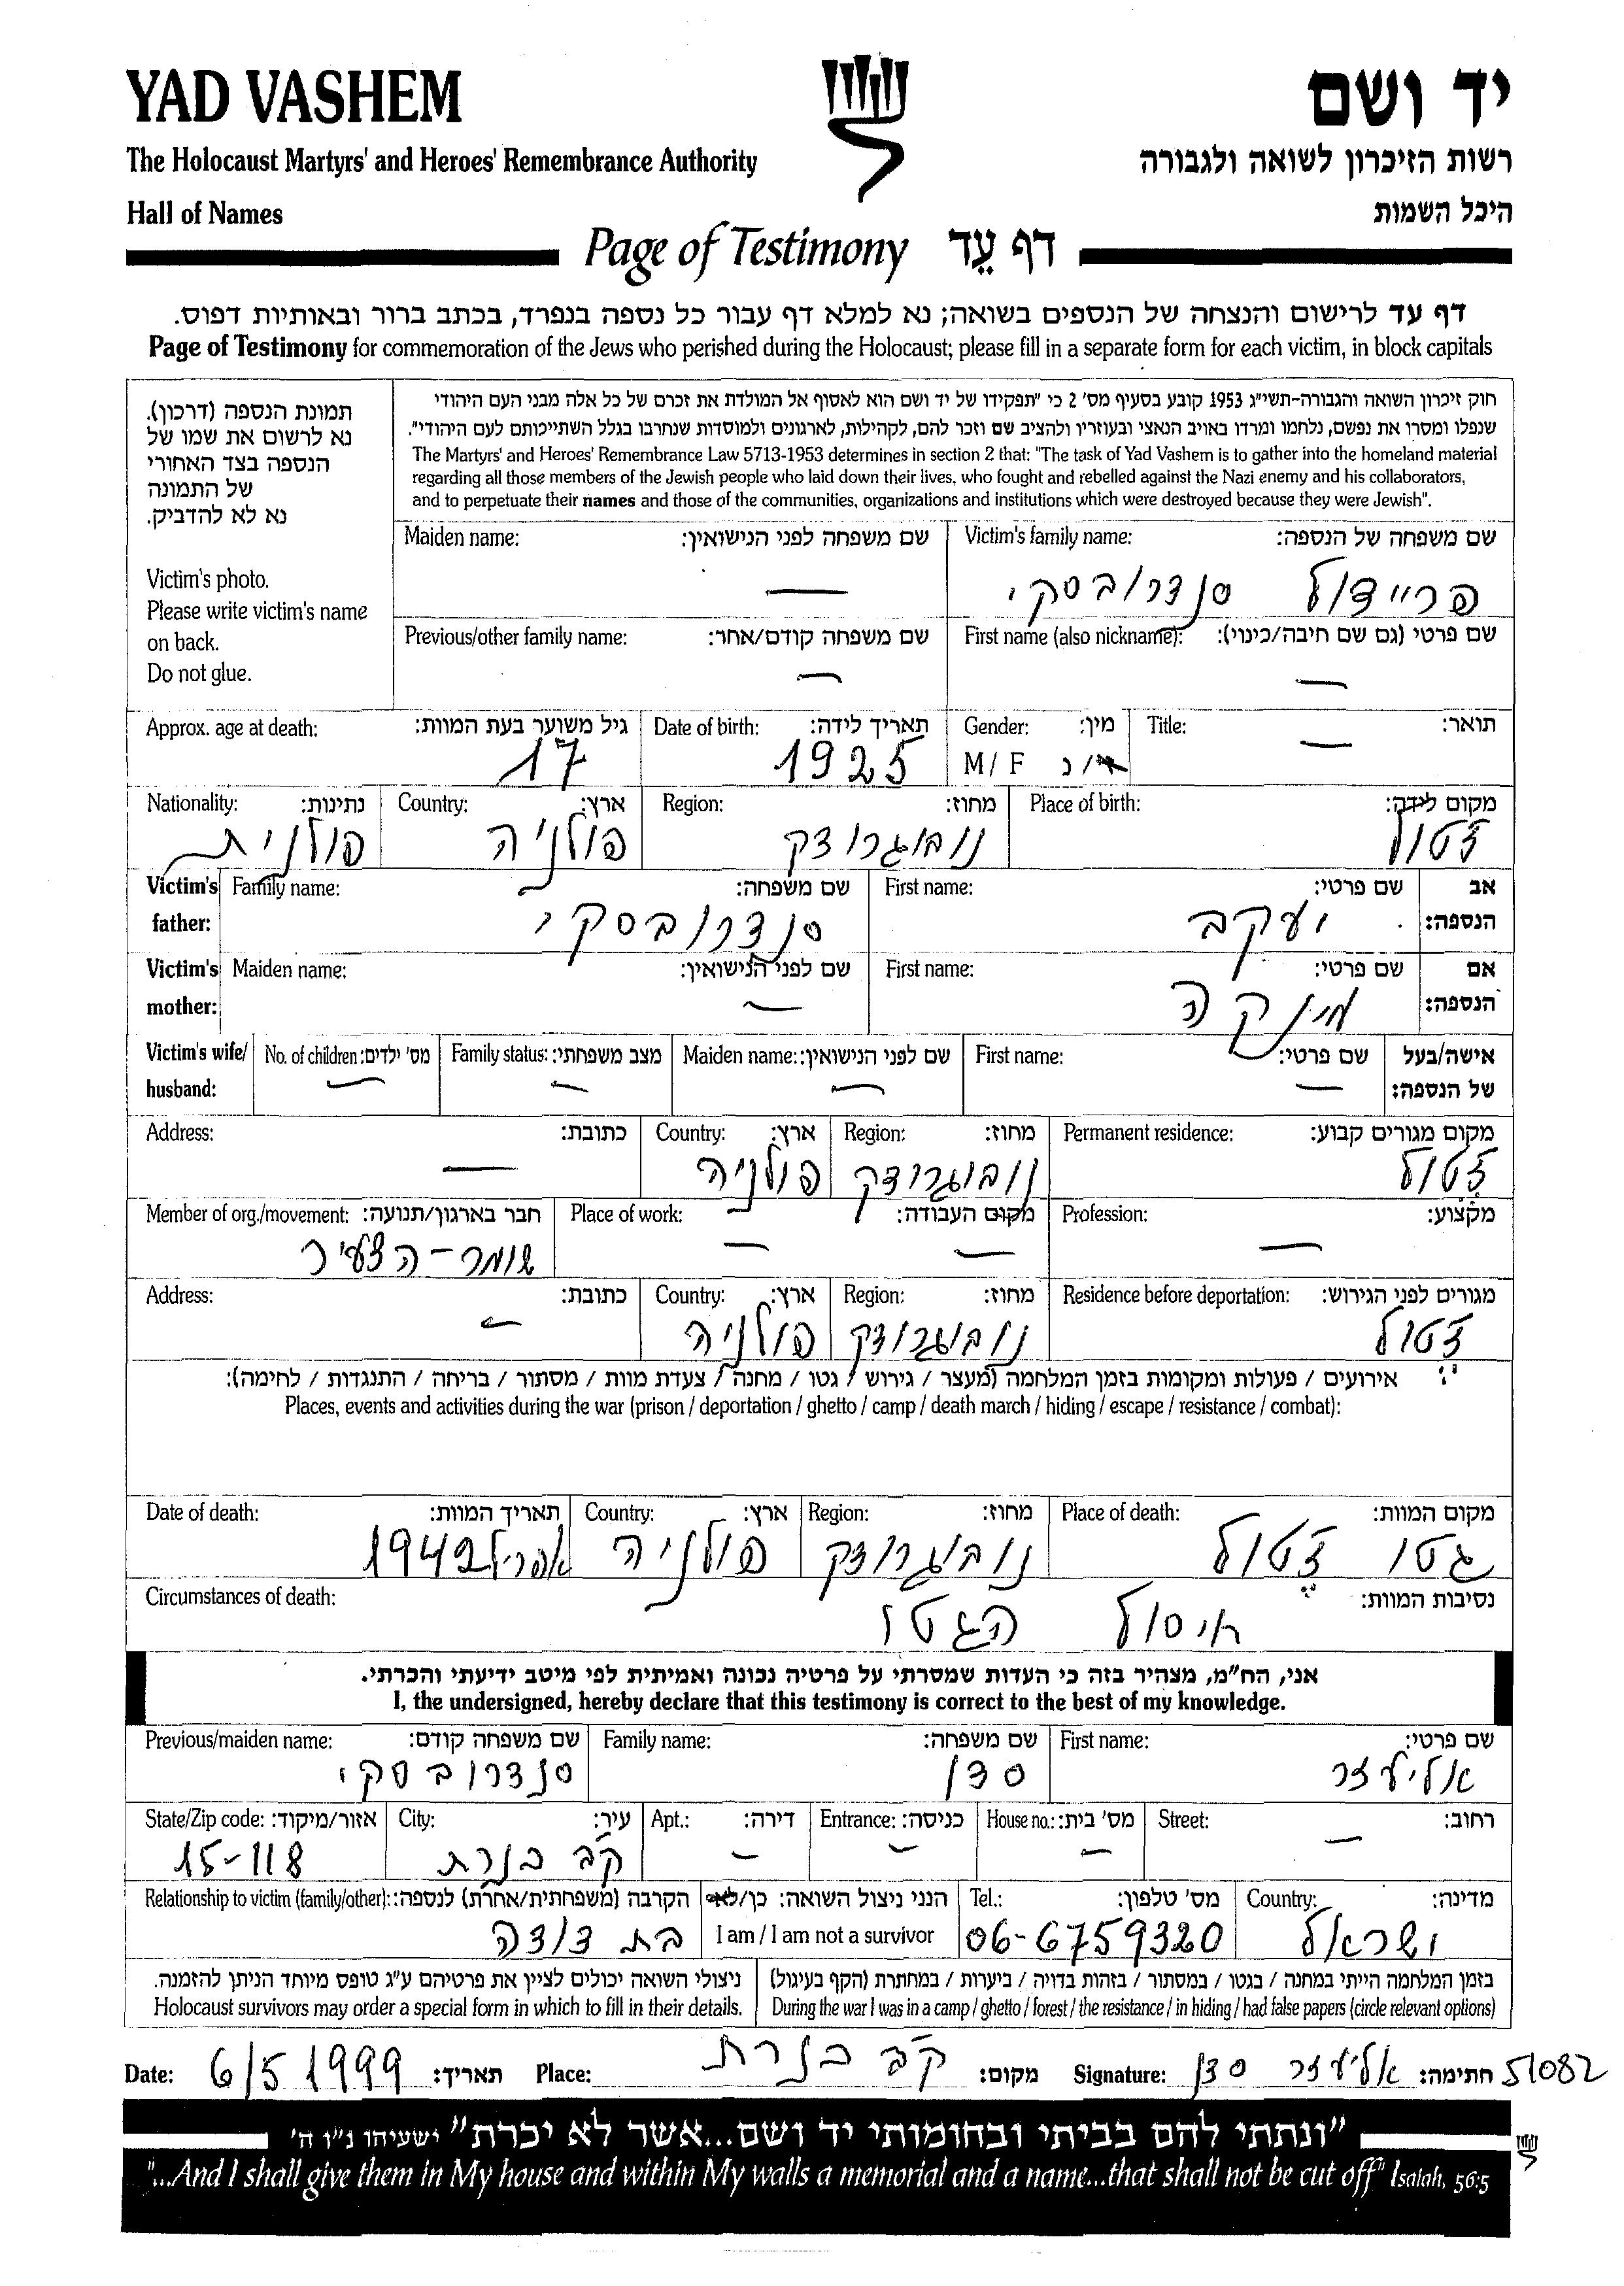 YAD VASHEM
יד ושם
The Holocaust Martyrs' and Heroes' Remembrance Authority
רשות הזיכרון לשואה ולגבורה
Hall of Names
היכל השמות
Page of Testimony דף עֵד
דף עד לרישום והנצחה של הנספים בשואה; נא למלא דף עבור כל נספה בנפרד, בכתב ברור ובאותיות דפוס.
Page of Testimony for commemoration of the Jews who perished during the Holocaust; please fill in a separate form for each victim, in block capitals
חוק זיכרון השואה והגבורה-תשי"ג 1953 קובע בסעיף מס' 2 כי "תפקידו של יד ושם הוא לאסוף אל המולדת את זכרם של כל אלה מבני העם היהודי
שנפלו ומסרו את נפשם, נלחמו ומרדו באויב הנאצי ובעוזריו ולהציב שם וזכר להם, לקהילות, לארגונים ולמוסדות שנחרבו בגלל השתייכותם לעם היהודי".
The Martyrs' and Heroes' Remembrance Law 5713-1953 determines in section 2 that: "The task of Yad Vashem is to gather into the homeland material
regarding all those members of the Jewish people who laid down their lives, who fought and rebelled against the Nazi enemy and his collaborators,
and to perpetuate their names and those of the communities, organizations and institutions which were destroyed because they were Jewish".
תמונת הנספה (דרכון).
נא לרשום את שמו של
הנספה בצד האחורי
של התמונה
נא לא להדביק.
Victim's photo.
Please write victim's name
on back.
Do not glue.
Victim's family name: שם משפחה של הנספה:
פריידול סנדרובסקי
Maiden name: שם משפחה לפני הנישואין:
—
First name (also nickname): שם פרטי (גם שם חיבה/כינוי):
—
Previous/other family name: שם משפחה קודם/אחר:
—
Title: תואר:
—
Gender: מין:
M/ F ז/נ
Date of birth: תאריך לידה:
1925
Approx. age at death: גיל משוער בעת המוות:
17
Place of birth: מקום לידה:
ז'טול
Region: מחוז:
נובוגרודק
Country: ארץ:
פולניה
Nationality: נתינות:
פולנית
Victim's father: אב הנספה:
First name: שם פרטי:
יעקב
Family name: שם משפחה:
סנדרובסקי
Victim's mother: אם הנספה:
First name: שם פרטי:
מינקה
Maiden name: שם לפני הנישואין:
—
Victim's wife/ husband: אישה/בעל של הנספה:
First name: שם פרטי:
—
Maiden name: שם לפני הנישואין:
—
Family status: מצב משפחתי:
—
No. of children: מס' ילדים:
—
Permanent residence: מקום מגורים קבוע:
ז'טול
Region: מחוז:
נובוגרודק
Country: ארץ:
פולניה
Address: כתובת:
—
Profession: מקצוע:
—
Place of work: מקום העבודה:
— —
Member of org./movement: חבר בארגון/תנועה:
שומר-הצעיר
Residence before deportation: מגורים לפני הגירוש:
ז'טול
Region: מחוז:
נובוגרודק
Country: ארץ:
פולניה
Address: כתובת:
—
אירועים / פעולות ומקומות בזמן המלחמה (מעצר / גירוש / גטו / מחנה / צעדת מוות / מסתור / בריחה / התנגדות / לחימה):
Places, events and activities during the war (prison / deportation / ghetto / camp / death march / hiding / escape / resistance / combat):
Place of death: מקום המוות:
גטו ז'טול
Region: מחוז:
נובוגרודק
Country: ארץ:
פולניה
Date of death: תאריך המוות:
אפריל 1942
Circumstances of death: נסיבות המוות:
חיסול הגטו
אני, הח"מ, מצהיר בזה כי העדות שמסרתי על פרטיה נכונה ואמיתית לפי מיטב ידיעתי והכרתי.
I, the undersigned, hereby declare that this testimony is correct to the best of my knowledge.
First name: שם פרטי:
אליעזר
Family name: שם משפחה:
סדן
Previous/maiden name: שם משפחה קודם:
סנדרובסקי
Street: רחוב:
—
House no.: מס' בית:
—
Entrance: כניסה:
—
Apt.: דירה:
—
City: עיר:
קב' כנרת
State/Zip code: אזור/מיקוד:
15-118
Country: מדינה:
ישראל
Tel.: מס' טלפון:
06-6759320
הנני ניצול השואה: כן/לא
I am / I am not a survivor
Relationship to victim (family/other): הקרבה (משפחתית/אחרת) לנספה:
בת דודה
בזמן המלחמה הייתי במחנה / בגטו / במסתור / בזהות בדויה / ביערות / במחתרת (הקף בעיגול)
During the war I was in a camp / ghetto / forest / the resistance / in hiding / had false papers (circle relevant options)
ניצולי השואה יכולים לציין את פרטיהם ע"ג טופס מיוחד הניתן להזמנה.
Holocaust survivors may order a special form in which to fill in their details.
Date: 6/5 1999 תאריך: Place: קב' כנרת מקום: Signature: אליעזר סדן חתימה: 51082
"ונתתי להם בביתי ובחומותי יד ושם...אשר לא יכרת" ישעיהו נ"ו ה'
"...And I shall give them in My house and within My walls a memorial and a name...that shall not be cut off" Isaiah, 56:5